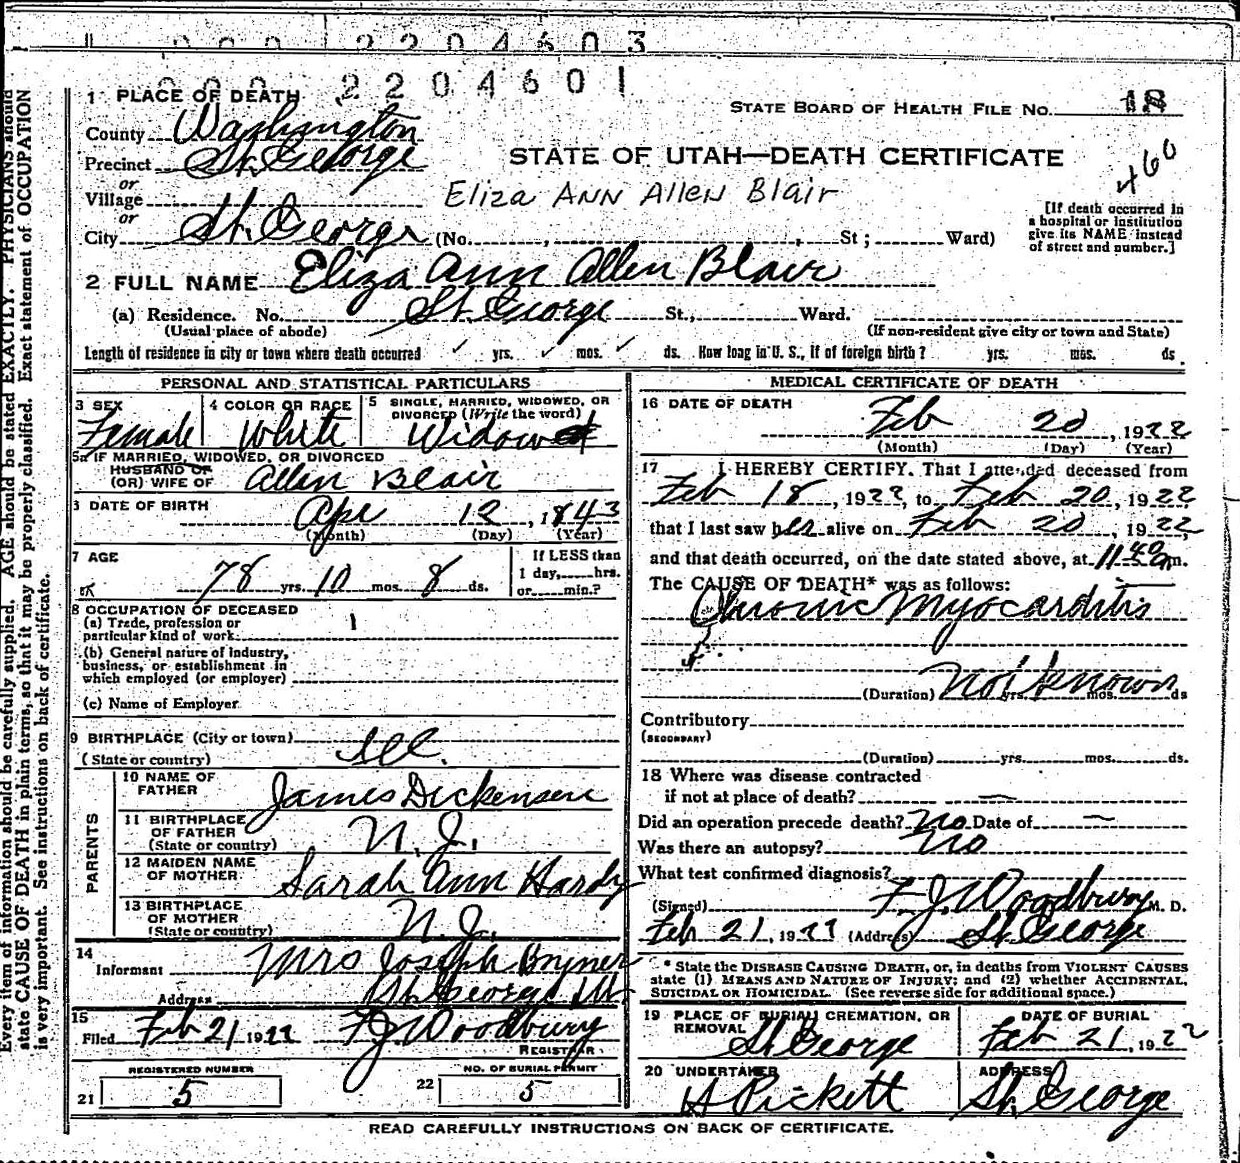 1 000 2204603
000 2204601
1 PLACE OF DEATH
STATE BOARD OF HEALTH FILE NO. 18
County Washington
Precinct St. George
STATE OF UTAH—DEATH CERTIFICATE
460
or
Village
Eliza ANN Allen Blair
or
City St. George (No. , St; Ward)
[If death occurred in
a hospital or institution
give its NAME instead
of street and number.]
2 FULL NAME Eliza Ann Allen Blair
(a) Residence. No. St. George St., Ward.
(Usual place of abode)
(If non-resident give city or town and State)
Length of residence in city or town where death occurred ✓ yrs. ✓ mos. ✓ ds. How long in U. S., if of foreign birth? yrs. mos. ds.
PERSONAL AND STATISTICAL PARTICULARS
3 SEX
Female
4 COLOR OR RACE
White
5 SINGLE, MARRIED, WIDOWED, OR
DIVORCED (Write the word)
Widow
5a IF MARRIED, WIDOWED, OR DIVORCED
HUSBAND OF
(OR) WIFE OF Allen Blair
6 DATE OF BIRTH
Apr 12, 1843
(Month) (Day) (Year)
7 AGE
78 yrs. 10 mos. 8 ds.
If LESS than
1 day, hrs.
or min.?
8 OCCUPATION OF DECEASED
(a) Trade, profession or
particular kind of work
(b) General nature of industry,
business, or establishment in
which employed (or employer)
(c) Name of Employer
9 BIRTHPLACE (City or town)
(State or country) Ill.
PARENTS
10 NAME OF
FATHER James Dickensen
11 BIRTHPLACE
OF FATHER
(State or country) N. J.
12 MAIDEN NAME
OF MOTHER Sarah Ann Hardy
13 BIRTHPLACE
OF MOTHER
(State or country) N. J.
14
Informant Mrs Joseph Brymer
Address St. George Ut.
15
Filed Feb 21 1922 F J Woodbury
REGISTRAR
REGISTERED NUMBER
21 5
NO. OF BURIAL PERMIT
22 5
MEDICAL CERTIFICATE OF DEATH
16 DATE OF DEATH
Feb 20, 1922
(Month) (Day) (Year)
17 I HEREBY CERTIFY. That I attended deceased from
Feb 18, 1922, to Feb 20, 1922,
that I last saw her alive on Feb 20, 1922,
and that death occurred, on the date stated above, at 11:40 am.
The CAUSE OF DEATH* was as follows:
Chronic Myocarditis
(Duration) Not known yrs. mos. ds
Contributory
(SECONDARY)
(Duration) yrs. mos. ds.
18 Where was disease contracted
if not at place of death? —
Did an operation precede death? No Date of —
Was there an autopsy? No
What test confirmed diagnosis?
(Signed) F. J. Woodbury M. D.
Feb 21, 1922 (Address) St. George
* State the DISEASE CAUSING DEATH, or, in deaths from VIOLENT CAUSES
state (1) MEANS AND NATURE OF INJURY; and (2) whether ACCIDENTAL,
SUICIDAL OR HOMICIDAL. (See reverse side for additional space.)
19 PLACE OF BURIAL, CREMATION, OR
REMOVAL St. George
DATE OF BURIAL
Feb 21, 1922
20 UNDERTAKER
H Pickett
ADDRESS
St. George
READ CAREFULLY INSTRUCTIONS ON BACK OF CERTIFICATE.
Every item of information should be carefully supplied. AGE should be stated EXACTLY. PHYSICIANS should
state CAUSE OF DEATH in plain terms, so that it may be properly classified. Exact statement of OCCUPATION
is very important. See instructions on back of certificate.